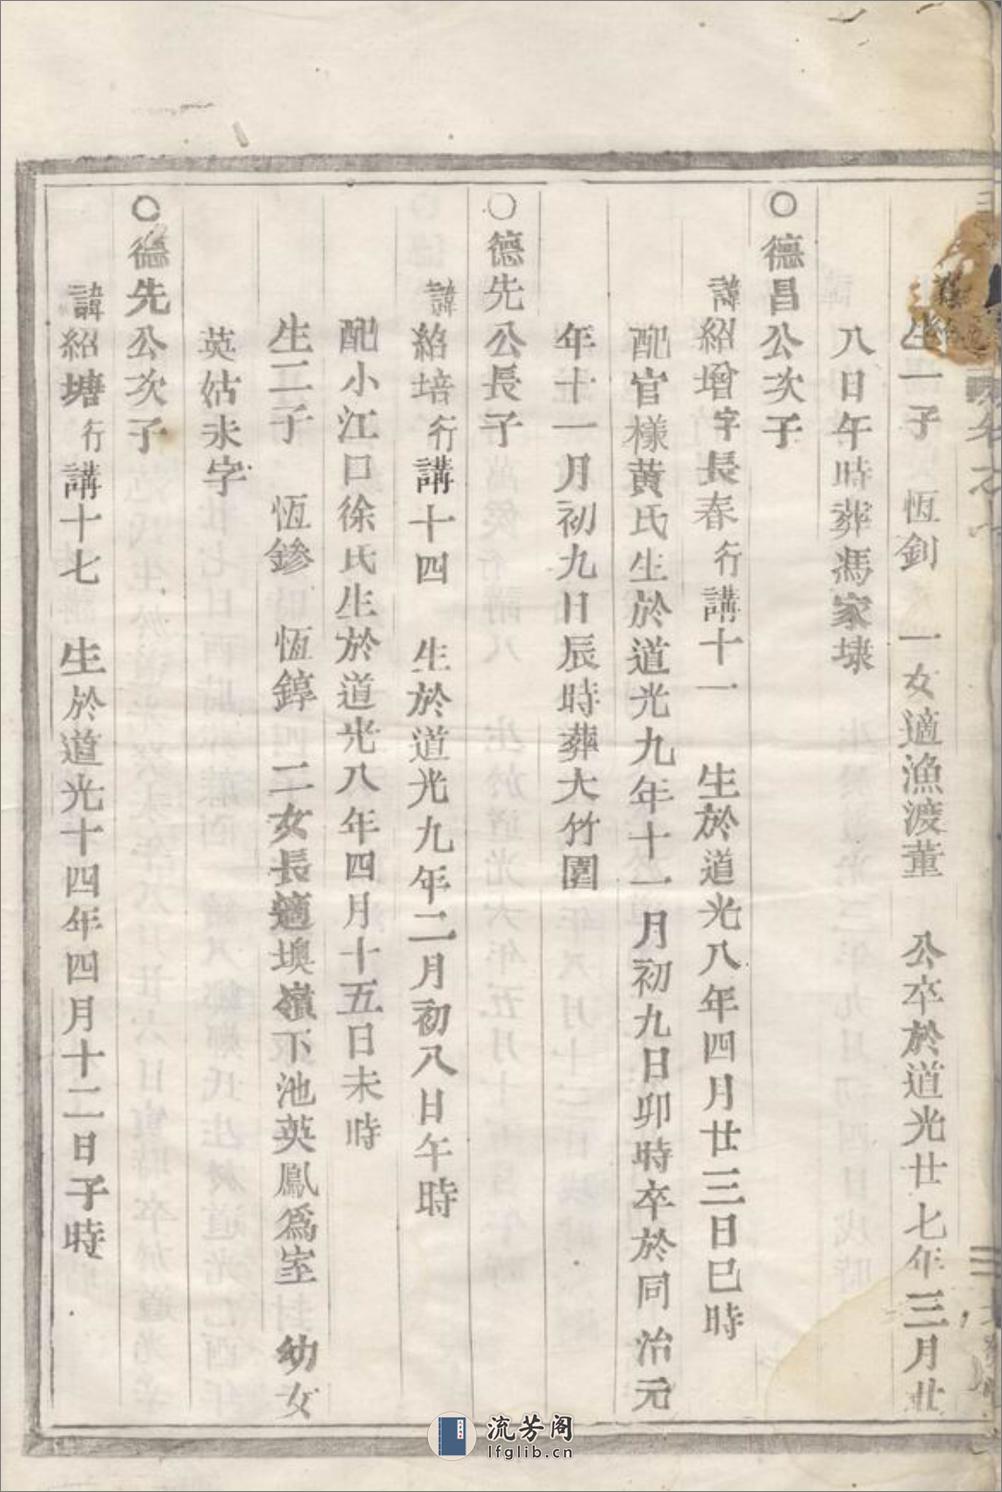 生一子 恆釗 一女適漁渡董 公卒於道光廿七年三月廿
八日午時葬馮家埭
○德昌公次子
諱紹增字長春行講十一 生於道光八年四月廿三日巳時
配官樣黃氏生於道光九年十一月初九日卯時卒於同治元
年十一月初九日辰時葬大竹園
○德先公長子
諱紹培行講十四 生於道光九年二月初八日午時
配小江口徐氏生於道光八年四月十五日未時
生二子 恆鏒 恆錞 二女長適墺嶺下池英鳳爲室 幼女
英姑未字
○德先公次子
諱紹塘行講十七 生於道光十四年四月十二日子時
流芳阁
lfglib.cn